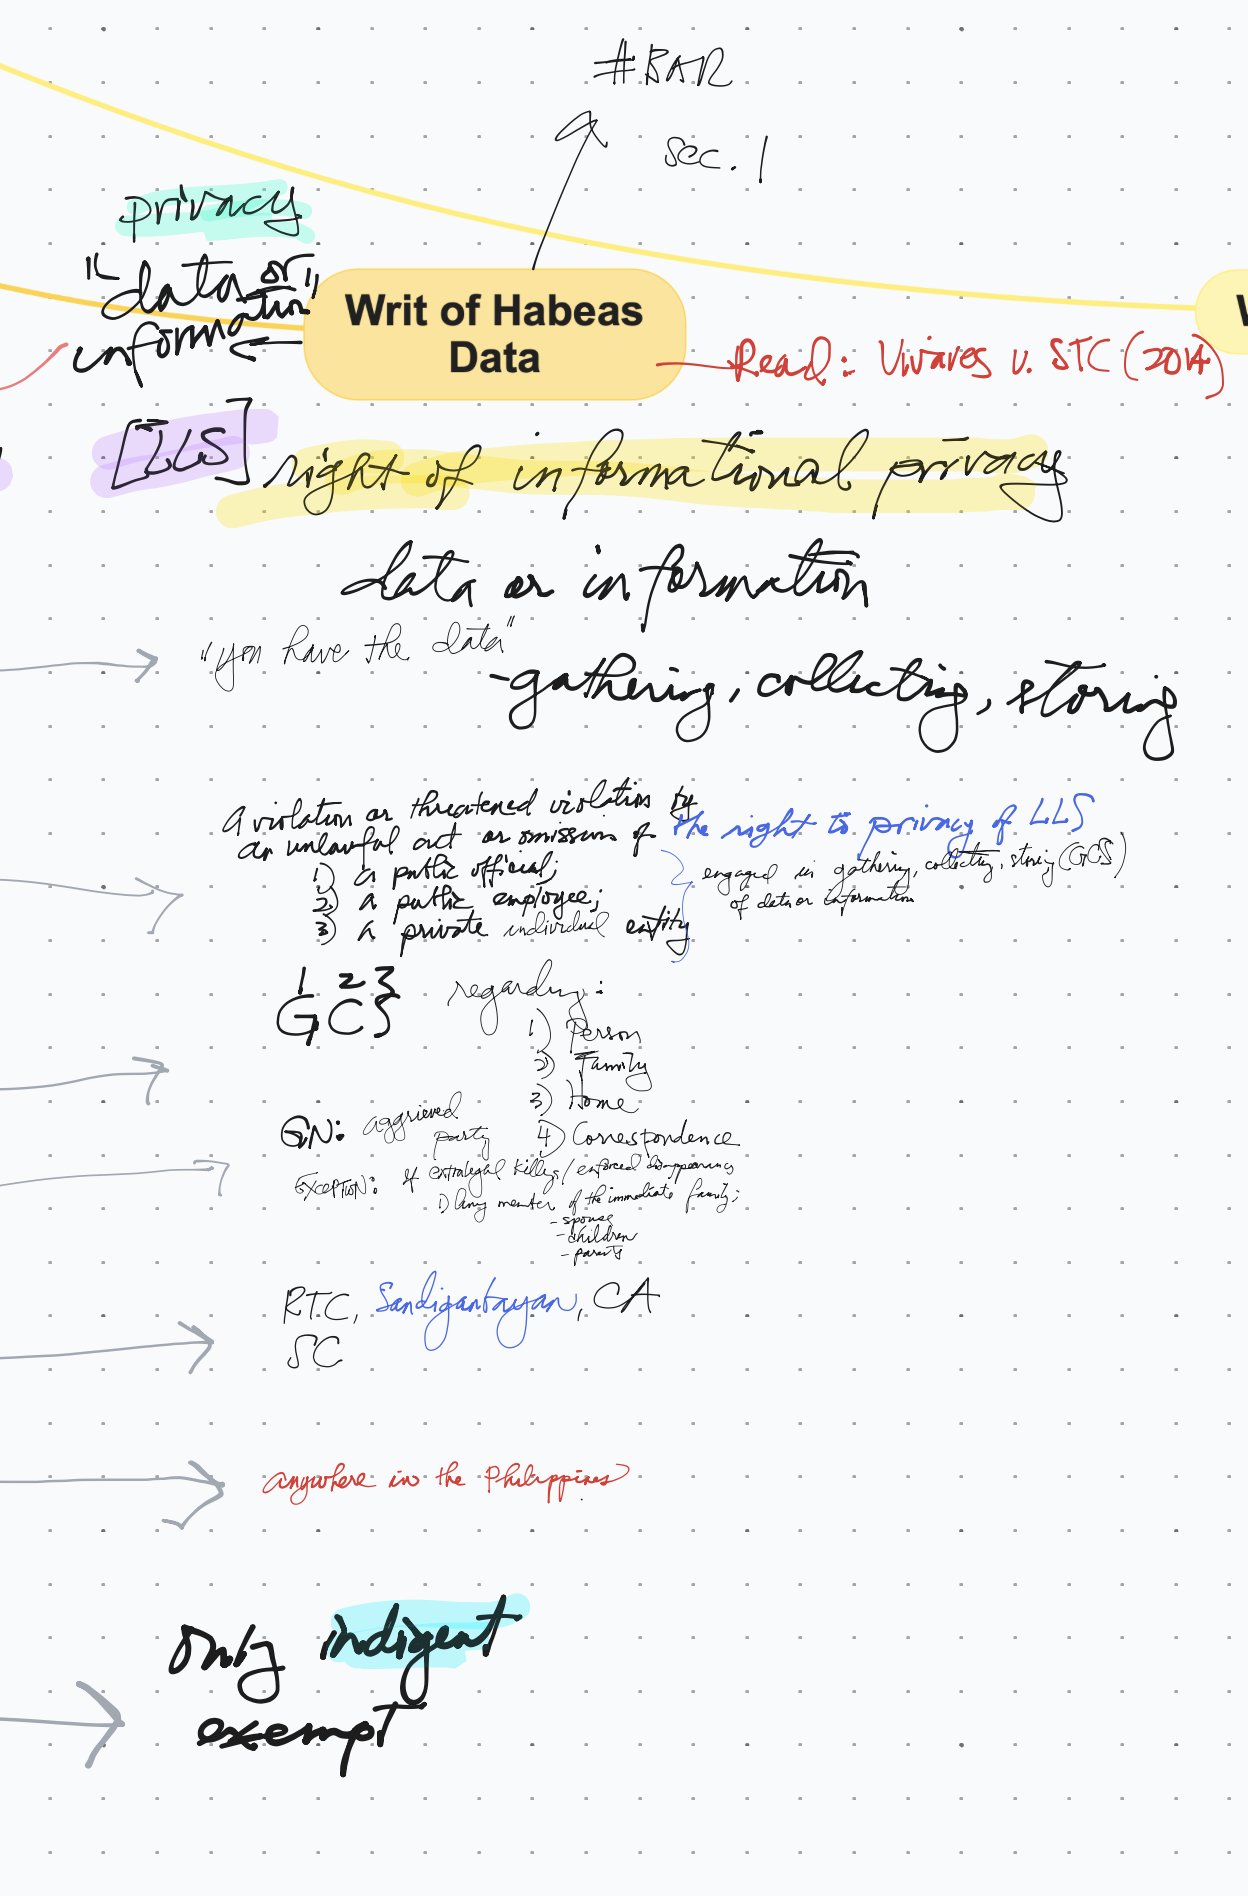 #BAR
sec. 1
privacy
"data or
information"
Writ of Habeas
Data
Read: Vivares v. STC (2014)
[LLS] right of informational privacy
data or information
"you have the data"
-gathering, collecting, storing
A violation or threatened violation by
an unlawful act or omission of the right to privacy of LLS
1) a public official;
2) a public employee;
3) a private individual entity
engaged in gathering, collecting, storing (GCS)
of data or information
1 2 3
GCS
regarding:
1) Person
2) Family
3) Home
4) Correspondence
GN: aggrieved
party
EXCEPTION: if extralegal killings/enforced disappearances
1) Any member of the immediate family;
- spouse
- children
- parents
RTC, Sandiganbayan, CA
SC
anywhere in the Philippines
only indigent
exempt